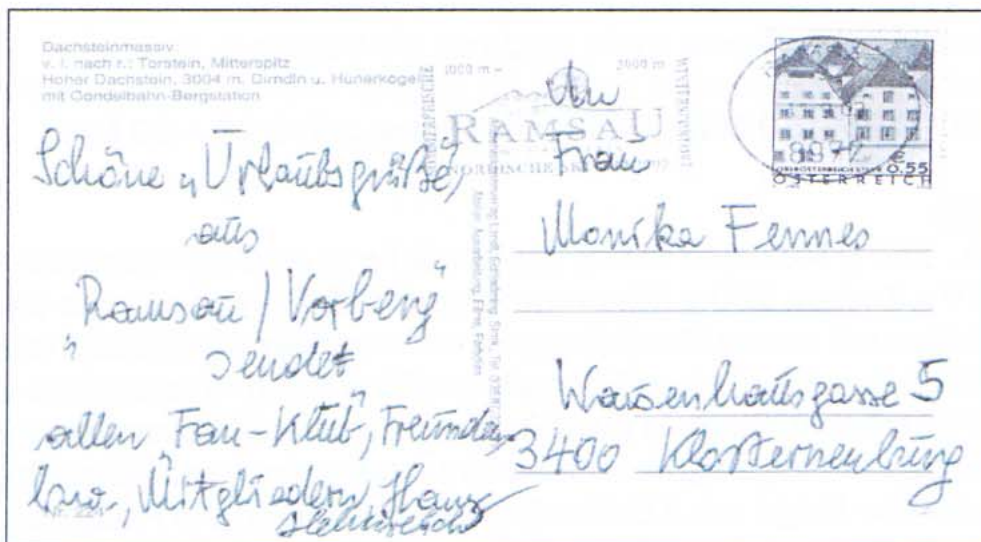 Dachsteinmassiv:
v. l. nach r.: Torstein, Mitterspitz
Hoher Dachstein, 3004 m, Dirndln u. Hunerkogel
mit Gondelbahn-Bergstation
Schöne „Urlaubsgrüße,
aus
"Ramsau / Vorberg"
sendet
allen Fan-Klub", Freunden
bzw., Mitgliedern, Hans
1000 m -
2000 m
RAMSAU
NORDISCHE
An
Frau
Monika Fennes
Waisenhausgasse 5
3400 Klosterneuburg
8972
€
0.55
ÖSTERREICH